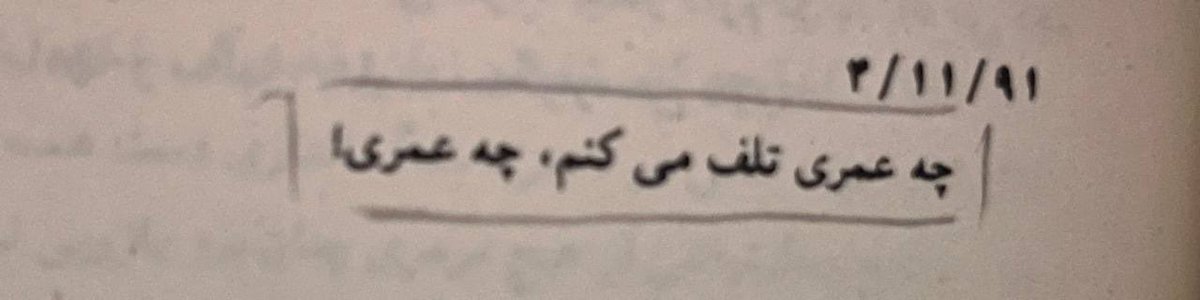 ۲/۱۱/۹۱
چه عمری تلف می کنم، چه عمری!